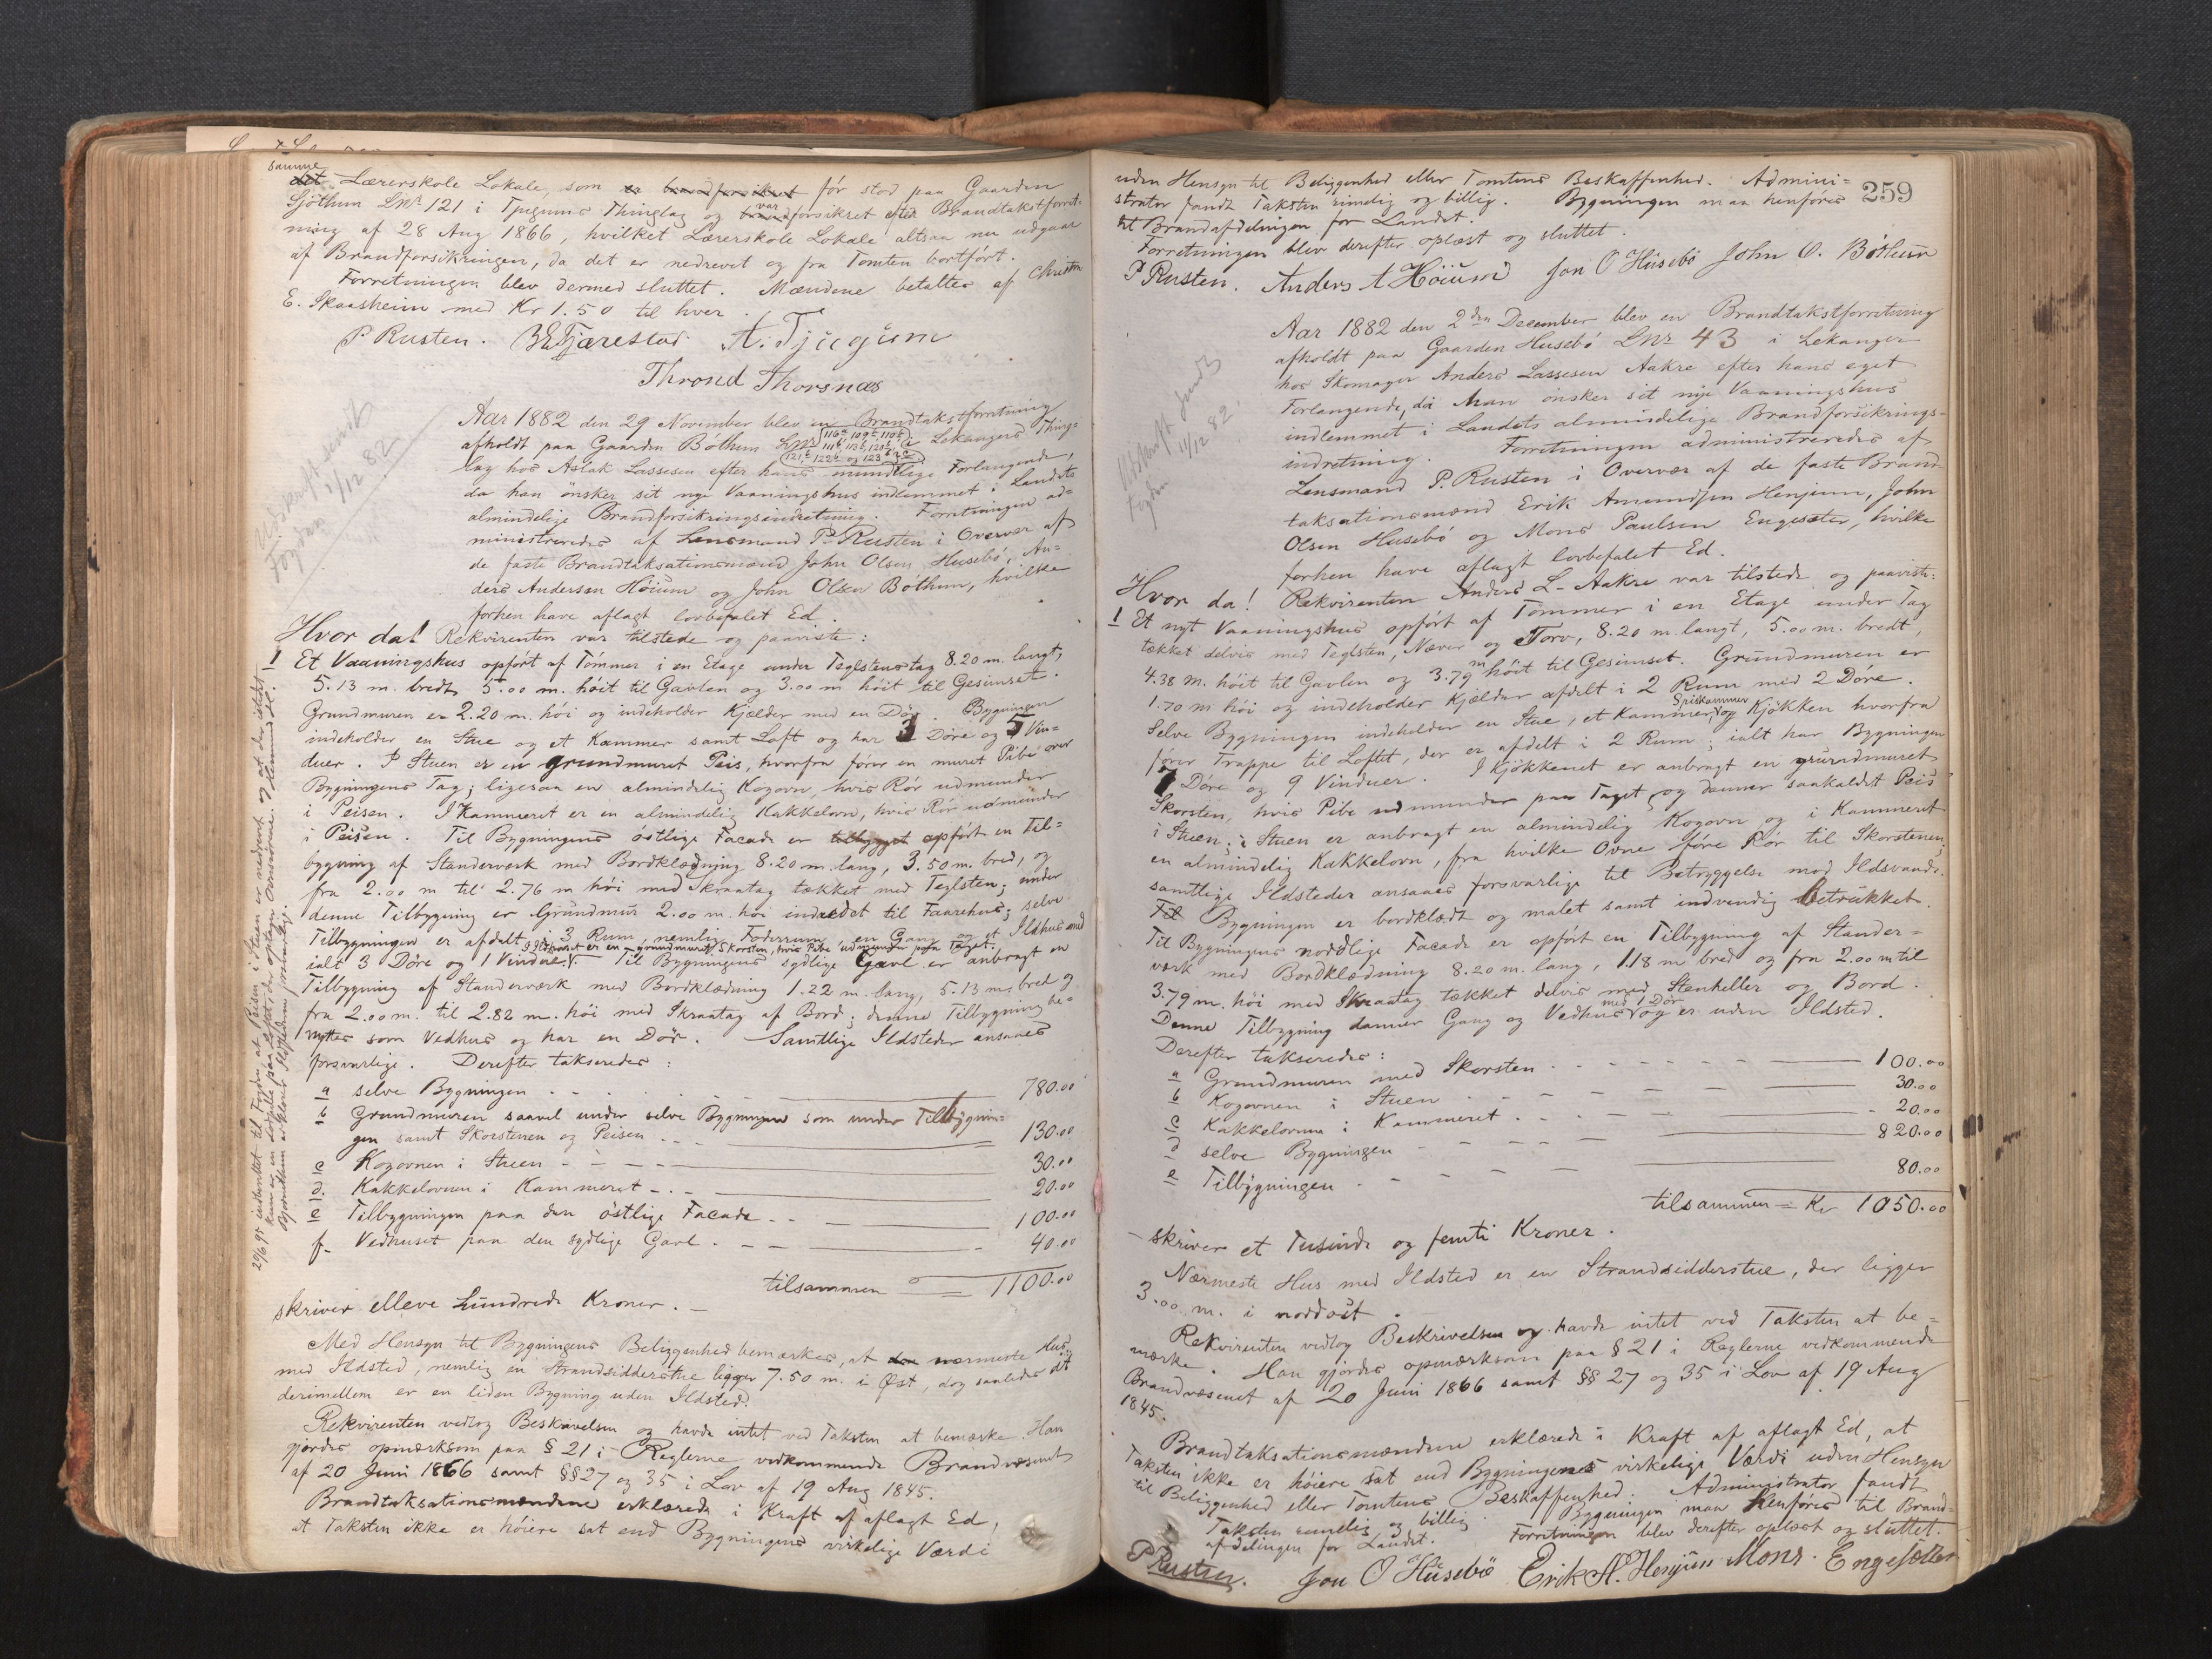 samme
det Lærerskole Lokale, som er brandforsikret før stod paa Gaarden
Sjöthun LNr 121 i Tjugums Thinglag og var brandforsikret efter Brandtakstforret-
ning af 28 Aug 1866, hvilket Lærerskole Lokale altsaa nu udgaar
af Brandforsikringen, da det er nedrevet og fra Tomten bortført.
Forretningen blev dermed sluttet. Mændene betaltes af Christen
E. Skaasheim med Kr 1.50 til hver.
P. Rusten. Fjærestad A. Tjugum
Thrond Thorsnæs
Udskrift sendt
Fogden 1/12 82
Aar 1882 den 29 November blev en Brandtakstforretning
afholdt paa Gaarden Bothun LNr 116a 109c 110b 111b 113b 120b 121b 122b og 123b i Lekanger Thing-
lag hos Aslak Lassesen efter hans mundtlige Forlangende,
da han ønsker sit nye Vaaningshus indlemmet i Landets
almindelige Brandforsikringsindretning. Forretningen ad-
ministreredes af Lensmand P. Rusten i Overvær af
de faste Brandtaksationsmænd John Olsen Husebö, An-
ders Andersen Höium og John Olsen Bothun, hvilke
forhen have aflagt lovbefalet Ed.
Hvor da! Rekvirenten var tilstede og paaviste:
1 Et Vaaningshus opført af Tømmer i en Etage under Teglstenstag 8.20 m. langt,
5.13 m. bredt, 5.00 m. höit til Gavlen og 3.00 m höit til Gesimset.
Grundmuren er 2.20 m. höi og indeholder Kjælder med en Dör. Bygningen
indeholder en Stue og et Kammer samt Loft og har 3 Döre og 5 Vin-
duer. I Stuen er en grundmuret Peis, hvorfra förer en muret Pibe over
Bygningens Tag; ligesaa en almindelig Kogovn, hvis Rör udmunder
i Peisen. I Kammeret er en almindelig Kakkelovn, hvis Rör udmunder
i Peisen. Til Bygningens östlige Facade er tilbygget opfört en Til-
bygning af Standerværk med Bordklædning 8.20 m. lang, 3.50 m. bred, og
fra 2.00 m til 2.76 m höi med Skraatag tækket med Teglsten; under
denne Tilbygning er Grundmur 2.00 m. höi indredet til Faarehus; selve
Tilbygningen er afdelt i 3 Rum, nemlig Foderrum, en Gang og et Ildhus med
I Ildhuset er en grundmuret Skorsten, hvis Pibe udmunder paa Taget.
ialt 3 Döre og 1 Vindue. Til Bygningens sydlige Gavl er anbragt en
Tilbygning af Standerværk med Bordklædning 1.22 m. lang, 5.13 m. bred og
fra 2.00 m. til 2.82 m. höi med Skraatag af Bord; denne Tilbygning be-
nyttes som Vedhus og har en Dör. Samtlige Ildsteder ansaaes
forsvarlige. Derefter takseredes:
a selve Bygningen 780.00
b Grundmuren saavel under selve Bygningen som under Tilbygnin-
gen samt Skorstenen og Peisen 130.00
c Kogovnen i Stuen 30.00
d. Kakkelovnen i Kammeret 20.00
e Tilbygningen paa den östlige Facade 100.00
f. Vedhuset paa den sydlige Gavl 40.00
tilsammen = 1100.00
skriver elleve Hundrede Kroner.
Med Hensyn til Bygningens Beliggenhed bemærkes, at den nærmeste Hus
med Ildsted, nemlig en Strandsidderstue ligger 7.50 m. i Øst, dog saaledes at
derimellem er en liden Bygning uden Ildsted.
Rekvirenten vedtog Beskrivelsen og havde intet ved Taksten at bemærke. Han
gjordes opmærksom paa § 21 i Reglerne vedkommende Brandvæsenet
af 20 Juni 1866 samt §§ 27 og 35 i Lov af 19 Aug 1845.
Brandtaksationsmændene erklærede i Kraft af aflagt Ed,
at Taksten ikke er höiere sat end Bygningens virkelige Værdi
29/6 95 indberettet til Fogden at Peisen i Stuen er nedrevet og at der istedet
259
uden Hensyn til Beliggenhed eller Tomtens Beskaffenhed. Admini-
strator fandt Taksten rimelig og billig. Bygningen maa henføres
til Brandafdelingen for Landet.
Forretningen blev derefter oplæst og sluttet.
P Rusten. Anders A Höium Jon O Husebö John O. Böthun
Udskrift sendt
Fogden 11/12 82.
Aar 1882 den 2den December blev en Brandtakstforretning
afholdt paa Gaarden Husebö LNr 43 i Lekanger
hos Skomager Anders Lassesen Aakre efter hans eget
Forlangende, da Man ønsker sit nye Vaaningshus
indlemmet i Landets almindelige Brandforsikrings-
indretning. Forretningen administreredes af
Lensmand P. Rusten i Overvær af de faste Brand-
taksationsmænd Erik Amundsen Henjum, John
Olsen Husebö og Mons Paulsen Engesæter, hvilke
forhen have aflagt lovbefalet Ed.
Hvor da! Rekvirenten Anders L. Aakre var tilstede og paaviste:
1 Et nyt Vaaningshus opført af Tømmer i en Etage under Tag
tækket delvis med Teglsten, Næver og Torv, 8.20 m. langt, 5.00 m. bredt,
4.38 m. höit til Gavlen og 3.79 m höit til Gesimset. Grundmuren er
1.70 m höi og indeholder Kjælder afdelt i 2 Rum med 2 Döre.
Selve Bygningen indeholder en Stue, et Kammer, Spiskammer og Kjökken hvorfra
förer Trappe til Loftet, der er afdelt i 2 Rum; ialt har Bygningen
7 Döre og 9 Vinduer. I Kjökkenet er anbragt en grundmuret
Skorsten, hvis Pibe udmunder paa Taget og danner saakaldet Peis
i Stuen; i Stuen er anbragt en almindelig Kogovn og i Kammeret
en almindelig Kakkelovn, fra hvilke Ovne före Rör til Skorstenen;
samtlige Ildsteder ansaaes forsvarlige til Betryggelse mod Ildsvaade.
Til Bygningen er bordklædt og malet samt indvendig betrukket.
Til Bygningens nordlige Facade er opfört en Tilbygning af Stander-
værk med Bordklædning 8.20 m. lang, 1.18 m bred og fra 2.00 m til
3.79 m. höi med Skraatag tækket delvis med Stenheller og Bord.
Denne Tilbygning danner Gang og Vedhus med 1 Dör og er uden Ildsted.
Derefter takseredes:
a Grundmuren med Skorsten 100.00
b Kogovnen i Stuen 30.00
c Kakkelovnen i Kammeret 20.00
d selve Bygningen 820.00
e Tilbygningen 80.00
tilsammen = Kr 1050.00
skriver et Tusinde og femti Kroner.
Nærmeste Hus med Ildsted er en Strandsidderstue, der ligger
3.00 m. i nordöst.
Rekvirenten vedtog Beskrivelsen og havde intet ved Taksten at be-
mærke. Han gjordes opmærksom paa § 21 i Reglerne vedkommende
Brandvæsenet af 20 Juni 1866 samt §§ 27 og 35 i Lov af 19 Aug
1845.
Brandtaksationsmændene erklærede i Kraft af aflagt Ed, at
Taksten ikke er höiere sat end Bygningenes virkelige Værdi uden Hensyn
til Beliggenhed eller Tomtens Beskaffenhed. Administrator fandt
Taksten rimelig og billig. Bygningen maa henföres til Brand-
afdelingen for Landet. Forretningen blev derefter oplæst og sluttet.
P Rusten. Jon O Husebö Erik A. Henjum Mons. Engesæter